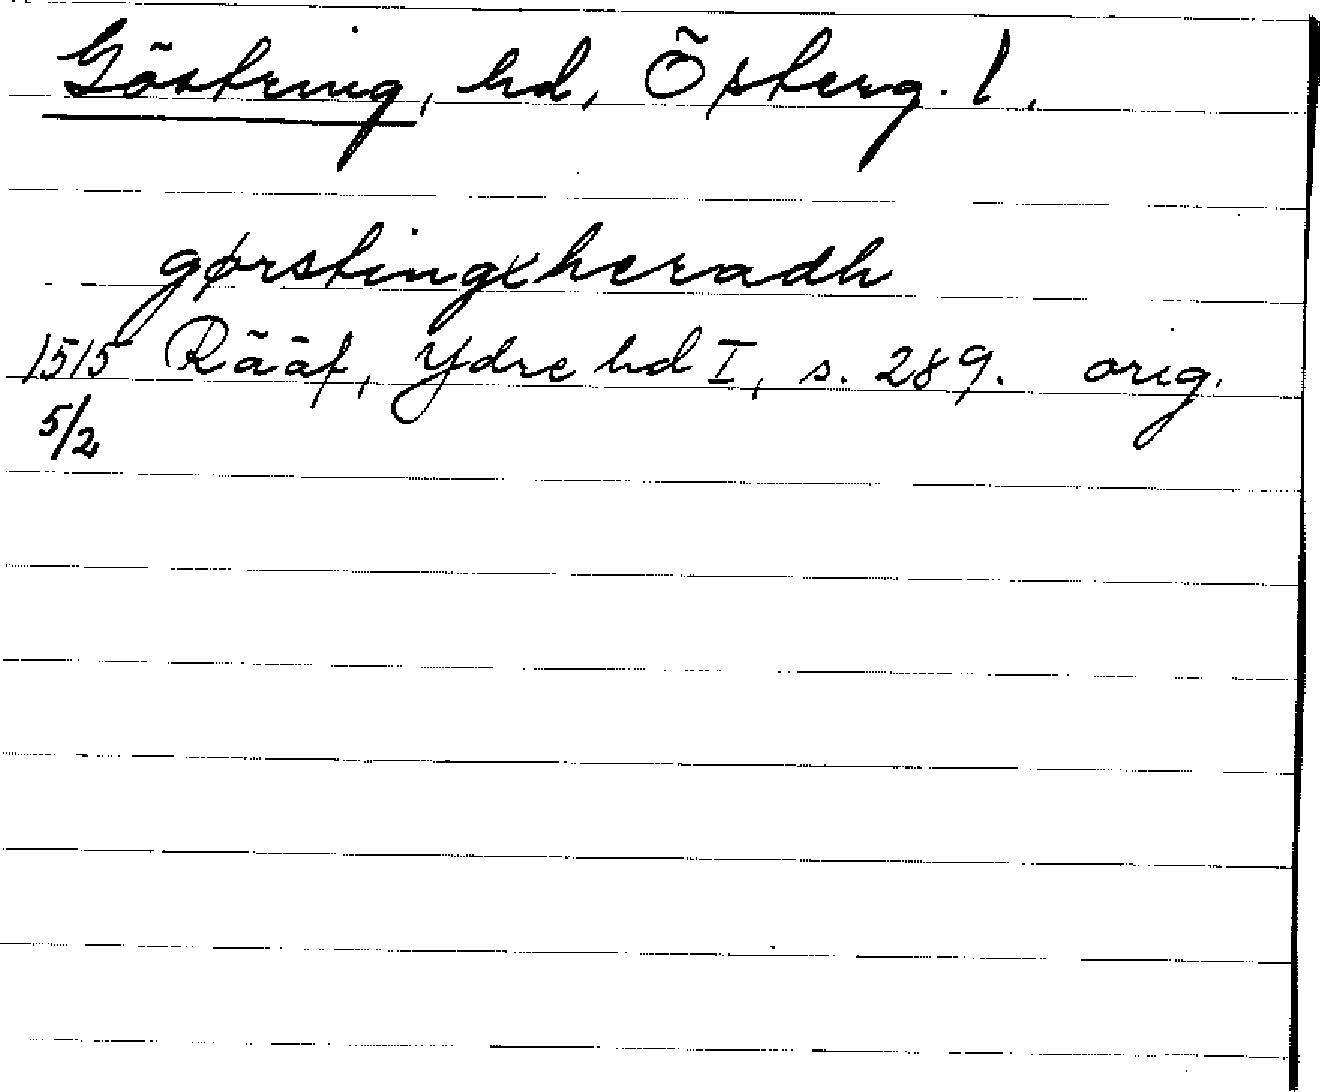 Göstring, hd, Österg. l.
gørstingxheradh
1515 Rääf, Ydre hd I, s. 289. orig.
5/2